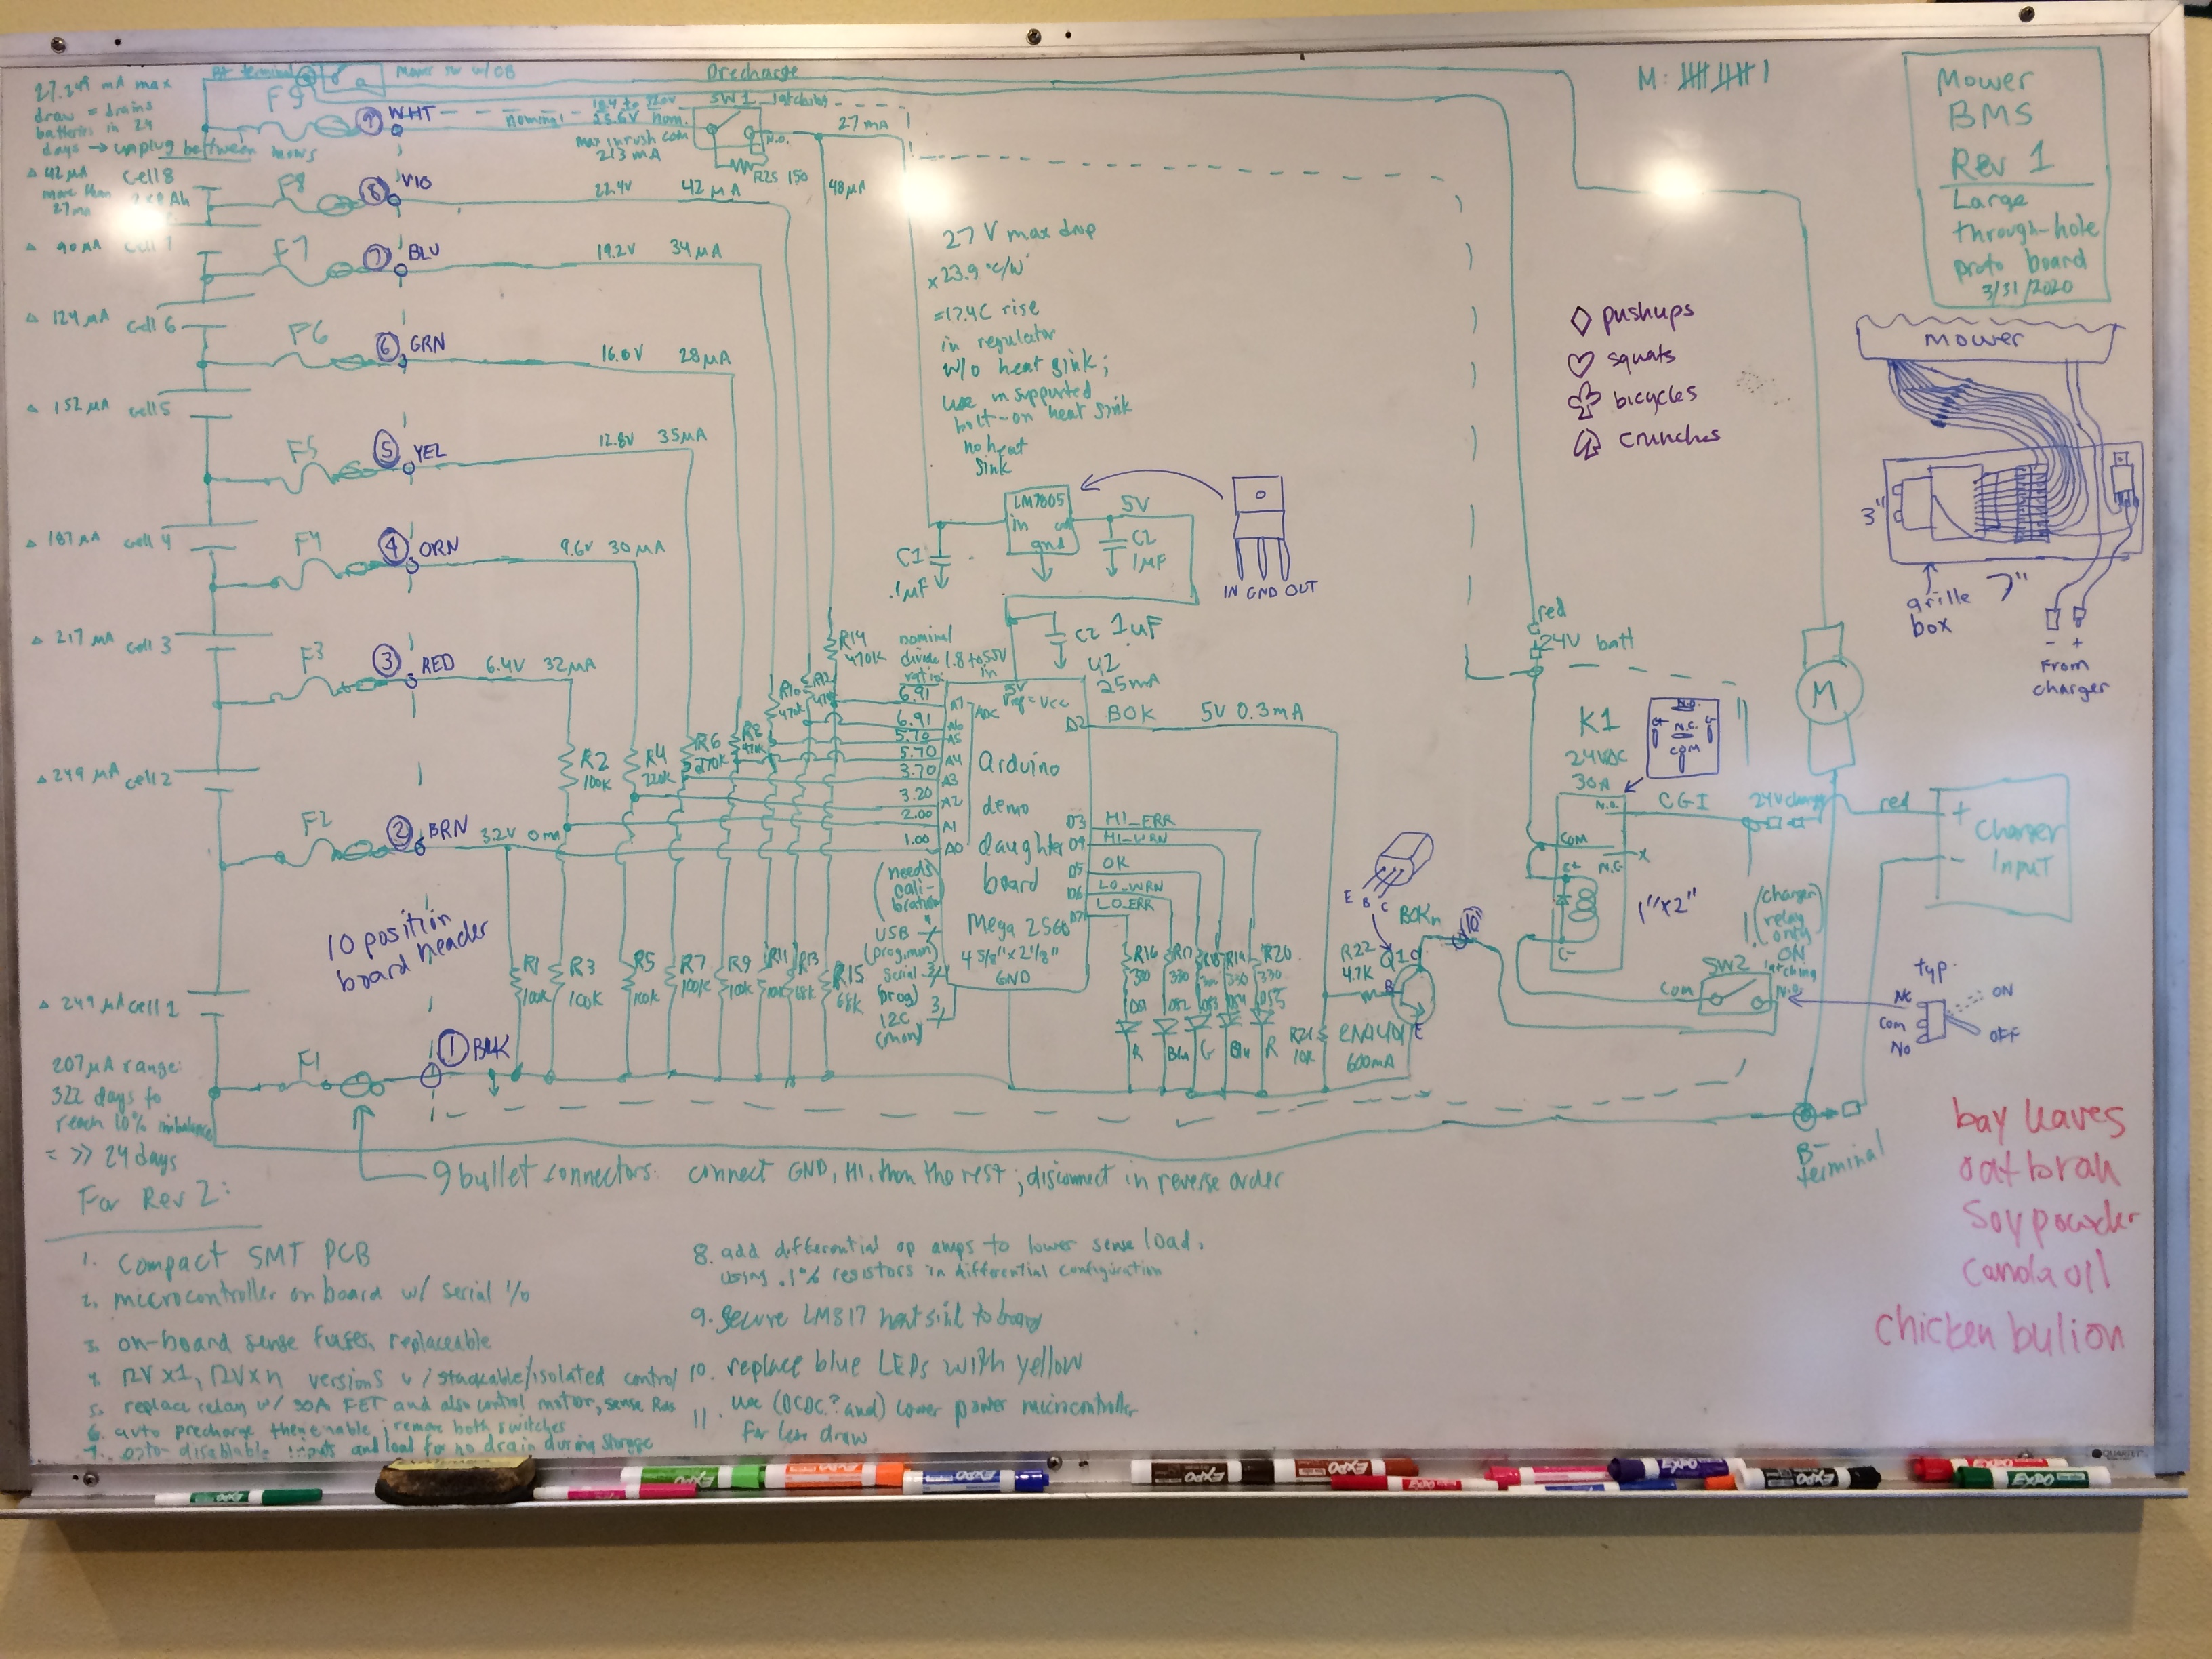 27.249 mA max
draw = drains
batteries in 24
days → unplug between mows
B+ terminal
Mower sw w/CB
Precharge
F9
9 WHT
nominal
25.6V nom.
SW1 latching
max inrush com
213 mA
N.O.
R25 150
27 mA
48µA
M:
Mower
BMS
Rev 1
Large
through-hole
proto board
3/31/2020
Δ 42µA
more than
27ma
cell 8
F8
8 VIO
22.4V 42µA
Δ 90µA
cell 7
F7
7 BLU
19.2V 34µA
Δ 124µA cell 6
F6
6 GRN
16.0V 28µA
Δ 152µA cell 5
F5
5 YEL
12.8V 35µA
Δ 187µA cell 4
F4
4 ORN
9.6V 30µA
Δ 217µA cell 3
F3
3 RED
6.4V 32µA
Δ 249µA cell 2
F2
2 BRN
3.2V 0 mA
10 position
board header
Δ 249µA cell 1
F1
1 BLK
207µA range:
322 days to
reach 10% imbalance
= >> 24 days
27 V max drop
x 23.9 °C/W
=17.4C rise
in regulator
w/o heat sink;
use unsupported
bolt-on heat sink
no heat
sink
LM7805
in
gnd
5V
C1
.1µF
C2
1µF
IN GND OUT
C2 1uF
nominal
divide
ratio:
1.8 to 5.5V
in
5V
Vref = Vcc
U2
25mA
R14
470K
R12
R10
470K
R8
470K
R6
270K
R4
220K
R2
100K
6.91 A7
6.91 A6
5.70 A5
5.70 A4
3.70 A3
3.20 A2
2.00 A1
1.00 A0
ADC
Arduino
demo
daughter
board
Mega 2560
4 5/8" x 2 1/8"
GND
(needs
cali-
bration)
USB
(prog,mon)
serial 3
(prog)
I2C 3
(mon)
D2 BOK 5V 0.3mA
D3 HI_ERR
D4 HI_WRN
D5 OK
D6 LO_WRN
D7 LO_ERR
R1
100K
R3
100K
R5
100K
R7
100K
R9
100K
R11
R13
68K
R15
68K
R16
330
R17
330
R18
R19
330
R20
330
DS1
DS2
DS3
DS4
DS5
R
Blu
G
Blu
R
R21
10K
R22
4.7K
E B C
BOKn
10
Q1
C
B
E
2N4401
600mA
pushups
squats
bicycles
crunches
Mower
3"
7"
grille
box
- +
From
charger
red
24V batt
M
K1
24VDC
30A
N.O.
N.C.
COM
N.O.
COM
C+
N.C.
X
C-
1"x2"
CGI
24V charge
red
+
-
Charger
Input
(charger
relay
only)
ON
latching
SW2
Com
N.O.
typ.
NC
Com
NO
ON
OFF
B-
terminal
9 bullet connectors: connect GND, HI, then the rest; disconnect in reverse order
For Rev 2:
1. Compact SMT PCB
2. microcontroller on board w/ serial I/O
3. on-board sense fuses, replaceable
4. 12V x1, 12V xn versions w/ stackable/isolated control
5. replace relay w/ 30A FET and also control motor, sense Rds
6. auto precharge then enable; remove both switches
7. opto-disablable inputs and load for no drain during storage
8. add differential op amps to lower sense load.
using .1% resistors in differential configuration
9. Secure LM317 heat sink to board
10. replace blue LEDs with yellow
11. use (DCDC? and) lower power microcontroller
for less draw
bay leaves
oat bran
Soy powder
canola oil
chicken bulion
QUARTET
EXPO
EXPO
EXPO
EXPO
EXPO
EXPO
EXPO
EXPO
EXPO
EXPO